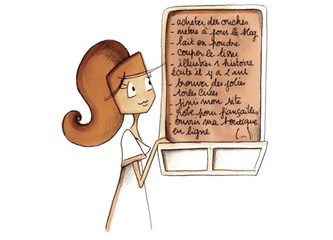 - acheter des couches
- mettre à jour le blog
- lait en poudre
- couper le livre
- illustrer 1 histoire
écrite il y a 1 an
- trouver des jolies
toiles cirées
- finir mon site
- robe pour fiançailles
- ouvrir ma boutique
en ligne (...)